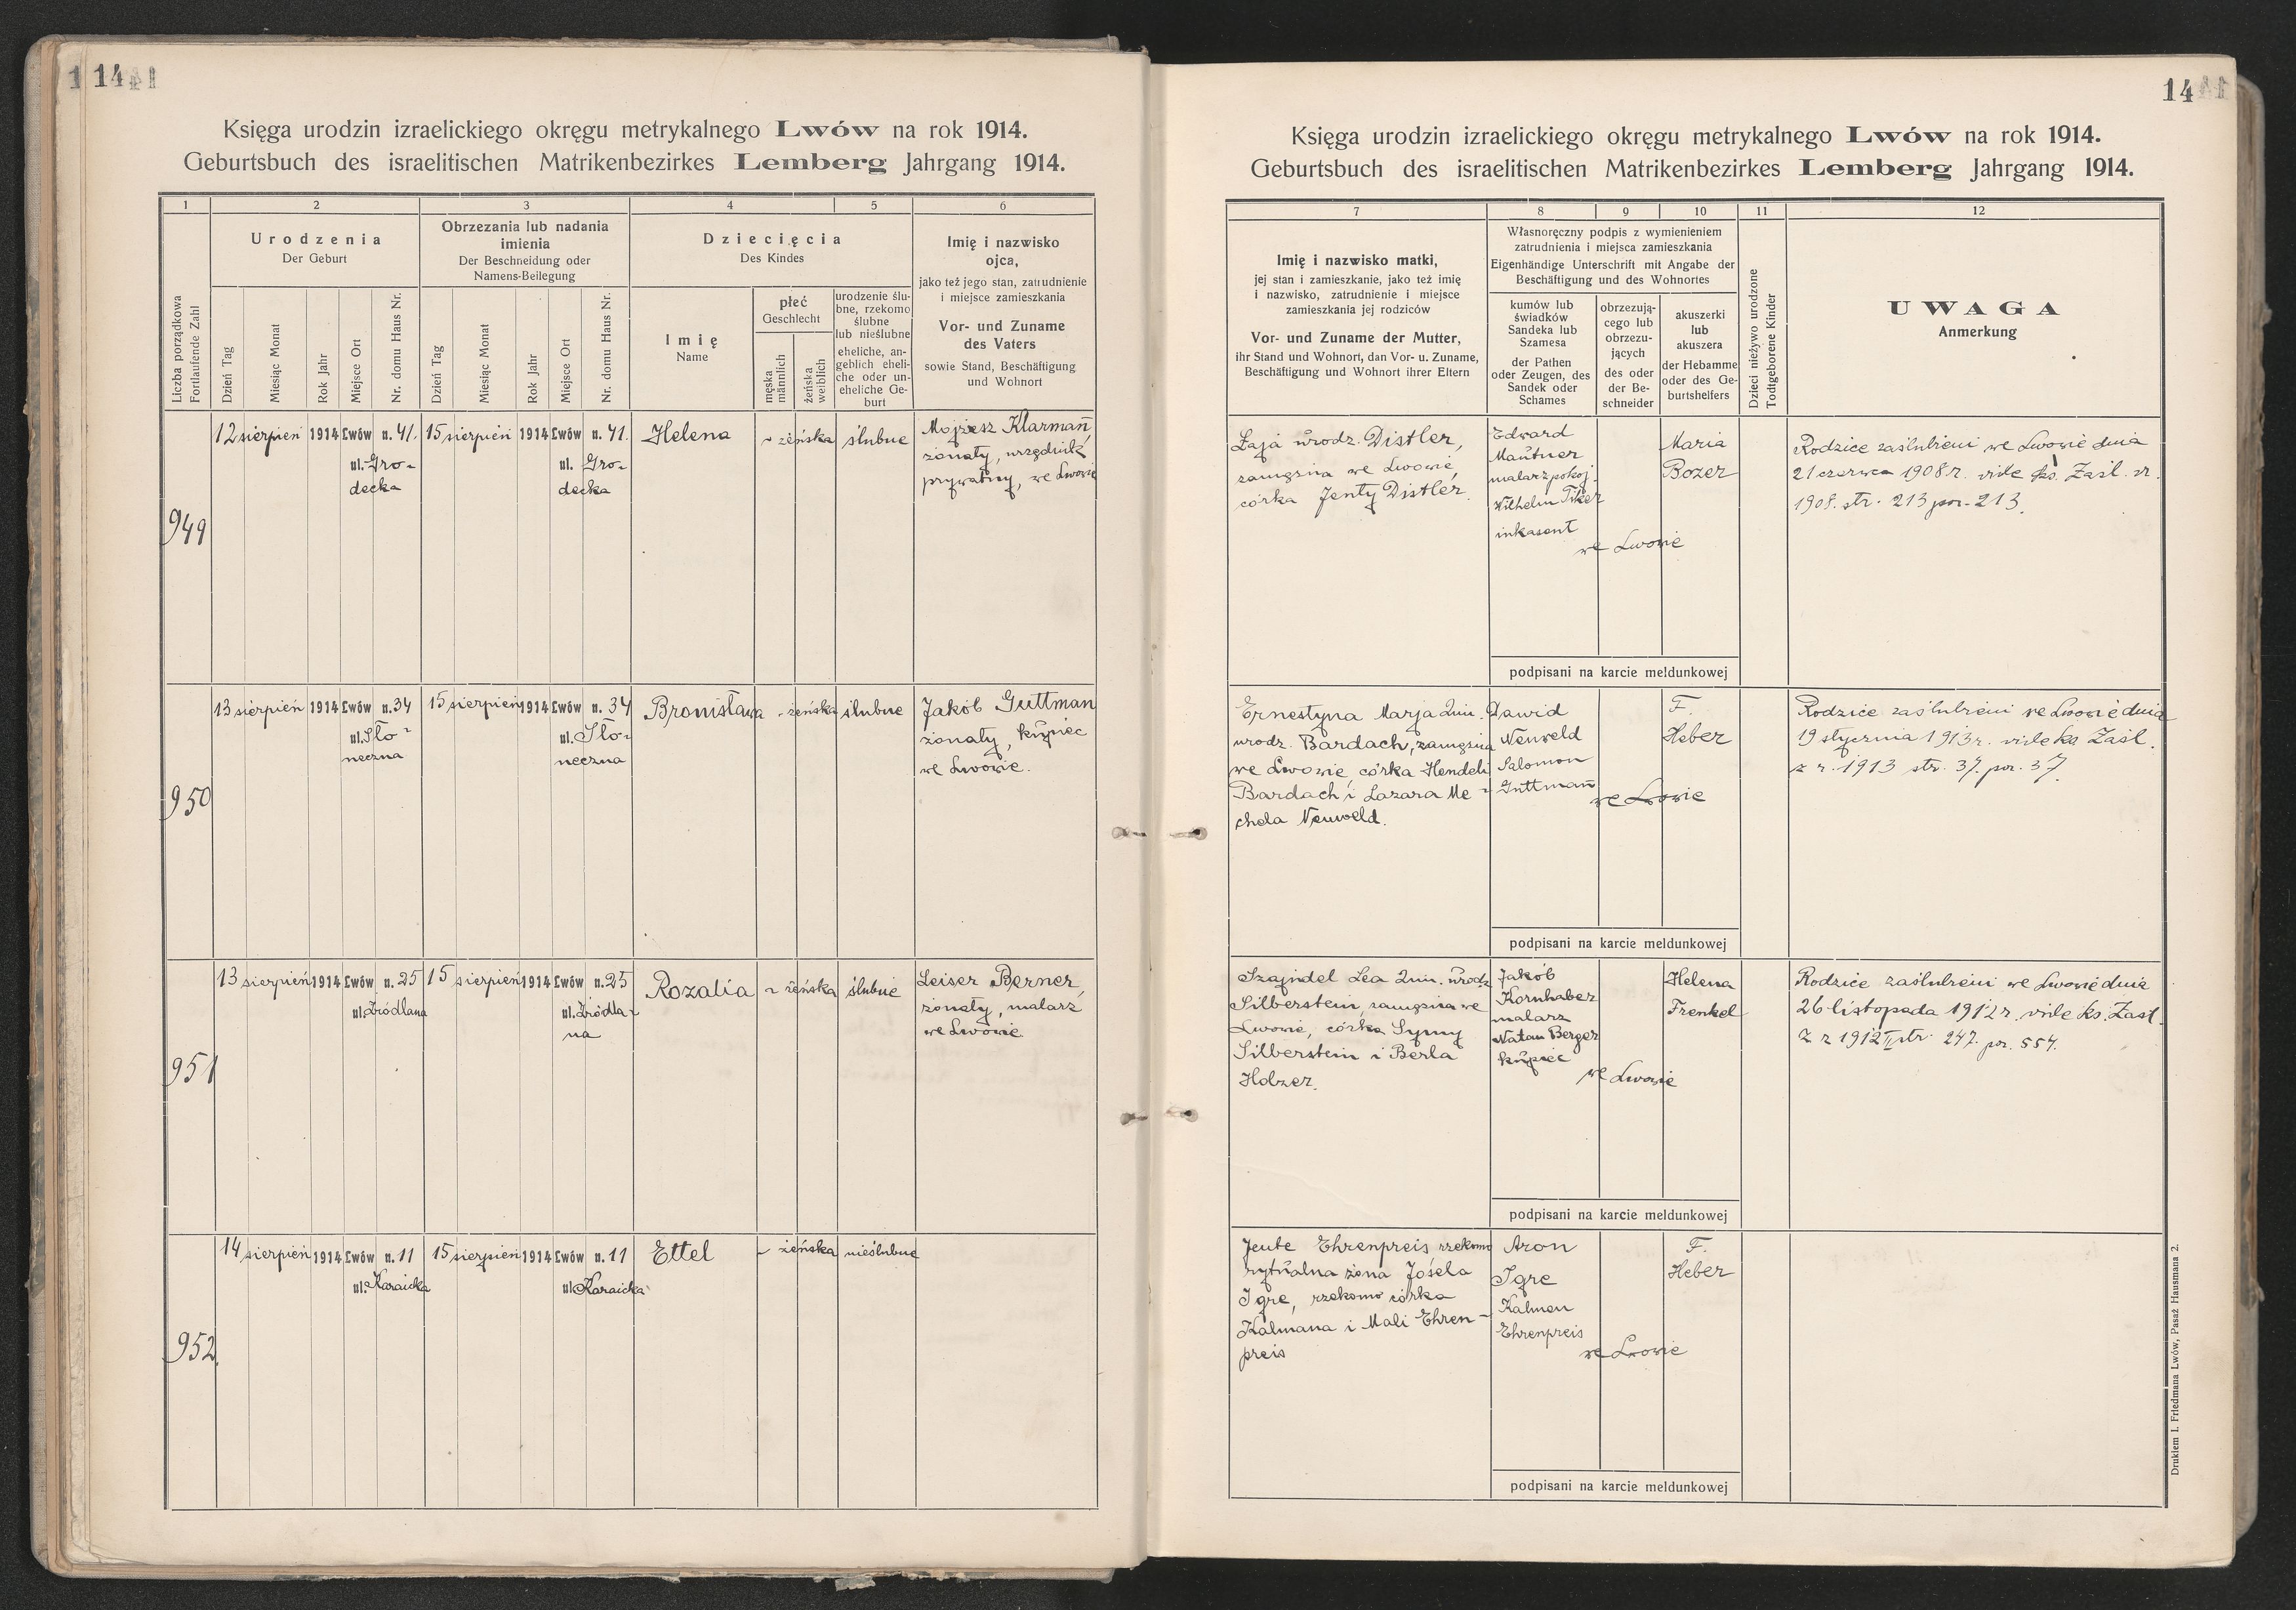 14
Księga urodzin izraelickiego okręgu metrykalnego Lwów na rok 1914.
Geburtsbuch des israelitischen Matrikenbezirkes Lemberg Jahrgang 1914.
1
2
3
4
5
6
Liczba porządkowa
Fortlaufende Zahl
Urodzenia
Der Geburt
Dzień Tag
Miesiąc Monat
Rok Jahr
Miejsce Ort
Nr. domu Haus Nr.
Obrzezania lub nadania
imienia
Der Beschneidung oder
Namens-Beilegung
Dzień Tag
Miesiąc Monat
Rok Jahr
Miejsce Ort
Nr. domu Haus Nr.
Dziecięcia
Des Kindes
Imię
Name
płeć
Geschlecht
męska
männlich
żeńska
weiblich
urodzenie ślu-
bne, rzekomo
ślubne
lub nieślubne
eheliche, an-
geblich eheli-
che oder un-
eheliche Ge-
burt
Imię i nazwisko
ojca,
jako też jego stan, zatrudnienie
i miejsce zamieszkania
Vor- und Zuname
des Vaters
sowie Stand, Beschäftigung
und Wohnort
949
12 sierpień 1914 Lwów n. 41.
ul. Gro-
decka
15 sierpień 1914 Lwów n. 41.
ul. Gro-
decka
Helena
żeńska
ślubne
Mojżesz Klarman,
żonaty, urzędnik
prywatny, we Lwowie
950
13 sierpień 1914 Lwów n. 34
ul. Sło-
neczna
15 sierpień 1914 Lwów n. 34
ul. Sło-
neczna
Bronisława
żeńska
ślubne
Jakób Guttman
żonaty, kupiec
we Lwowie.
951
13 sierpień 1914 Lwów n. 25
ul. Źródlana
15 sierpień 1914 Lwów n. 25
ul. Źródla-
na
Rozalia
żeńska
ślubne
Leiser Berner,
żonaty, malarz
we Lwowie.
952
14 sierpień 1914 Lwów n. 11
ul. Karaicka
15 sierpień 1914 Lwów n. 11
ul. Karaicka
Ettel
żeńska
nieślubne
14
Księga urodzin izraelickiego okręgu metrykalnego Lwów na rok 1914.
Geburtsbuch des israelitischen Matrikenbezirkes Lemberg Jahrgang 1914.
7
8
9
10
11
12
Imię i nazwisko matki,
jej stan i zamieszkanie, jako też imię
i nazwisko, zatrudnienie i miejsce
zamieszkania jej rodziców
Vor- und Zuname der Mutter,
ihr Stand und Wohnort, dan Vor- u. Zuname,
Beschäftigung und Wohnort ihrer Eltern
Własnoręczny podpis z wymienieniem
zatrudnienia i miejsca zamieszkania
Eigenhändige Unterschrift mit Angabe der
Beschäftigung und des Wohnortes
kumów lub
świadków
Sandeka lub
Szamesa
der Pathen
oder Zeugen, des
Sandek oder
Schames
obrzezują-
cego lub
obrzezu-
jących
des oder
der Be-
schneider
akuszerki
lub
akuszera
der Hebamme
oder des Ge-
burtshelfers
Dzieci nieżywo urodzone
Todtgeborene Kinder
UWAGA
Anmerkung
Łaja urodz. Distler,
zamężna we Lwowie,
córka Jenty Distler.
Edward
Mautner
malarz pokoj.
Wilhelm
inkasent
we Lwowie
Maria
Bozer
Rodzice zaślubieni we Lwowie dnia
21 czerwca 1908 r. vide ks. Zaśl. r.
1908. str. 213 por. 213.
podpisani na karcie meldunkowej
Ernestyna Marja 2im.
urodz. Bardach, zamężna
we Lwowie, córka Hendeli
Bardach i Lazara Me-
chela Neuweld.
Dawid
Neuweld
Salomon
Guttman
we Lwowie
F.
Heber
Rodzice zaślubieni we Lwowie dnia
19 stycznia 1913 r. vide ks Zaśl.
z r. 1913 str. 37. por. 37
podpisani na karcie meldunkowej
Szajndel Lea 2im. urodz
Silberstein, zamężna we
Lwowie, córka Symy
Silberstein i Berla
Holzer.
Jakób
Kornhaber
malarz
Natan Berger
kupiec
we Lwowie
Helena
Frenkel
Rodzice zaślubieni we Lwowie dnia
26 listopada 1912 r. vide ks. Zaśl.
z r 1912 II str. 247. por. 554.
podpisani na karcie meldunkowej
Jente Ehrenpreis rzekomo
rytualna żona Jośela
Igre, rzekomo córka
Kalmana i Mali Ehren-
preis
Aron
Igre
Kalman
Ehrenpreis
we Lwowie
F.
Heber
podpisani na karcie meldunkowej
Drukiem I. Friedmana Lwów, Pasaż Hausmana 2.